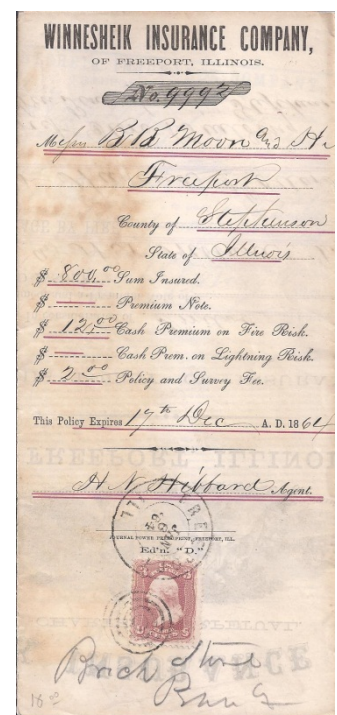 WINNESHEIK INSURANCE COMPANY,
OF FREEPORT, ILLINOIS.
No. 9992
Messrs B B Moon and H
Freeport
County of Stephenson
State of Illinois
$ 800,00 Sum Insured.
$ Premium Note.
$ 12,00 Cash Premium on Fire Risk.
$ Cash Prem. on Lightning Risk.
$ 2 00 Policy and Survey Fee.
This Policy Expires 17th Dec A. D. 1864
H N Hibbard Agent.
JOURNAL POWER PRESS PRINT, FREEPORT, ILL.
Ed'n. "D."
Brick Store